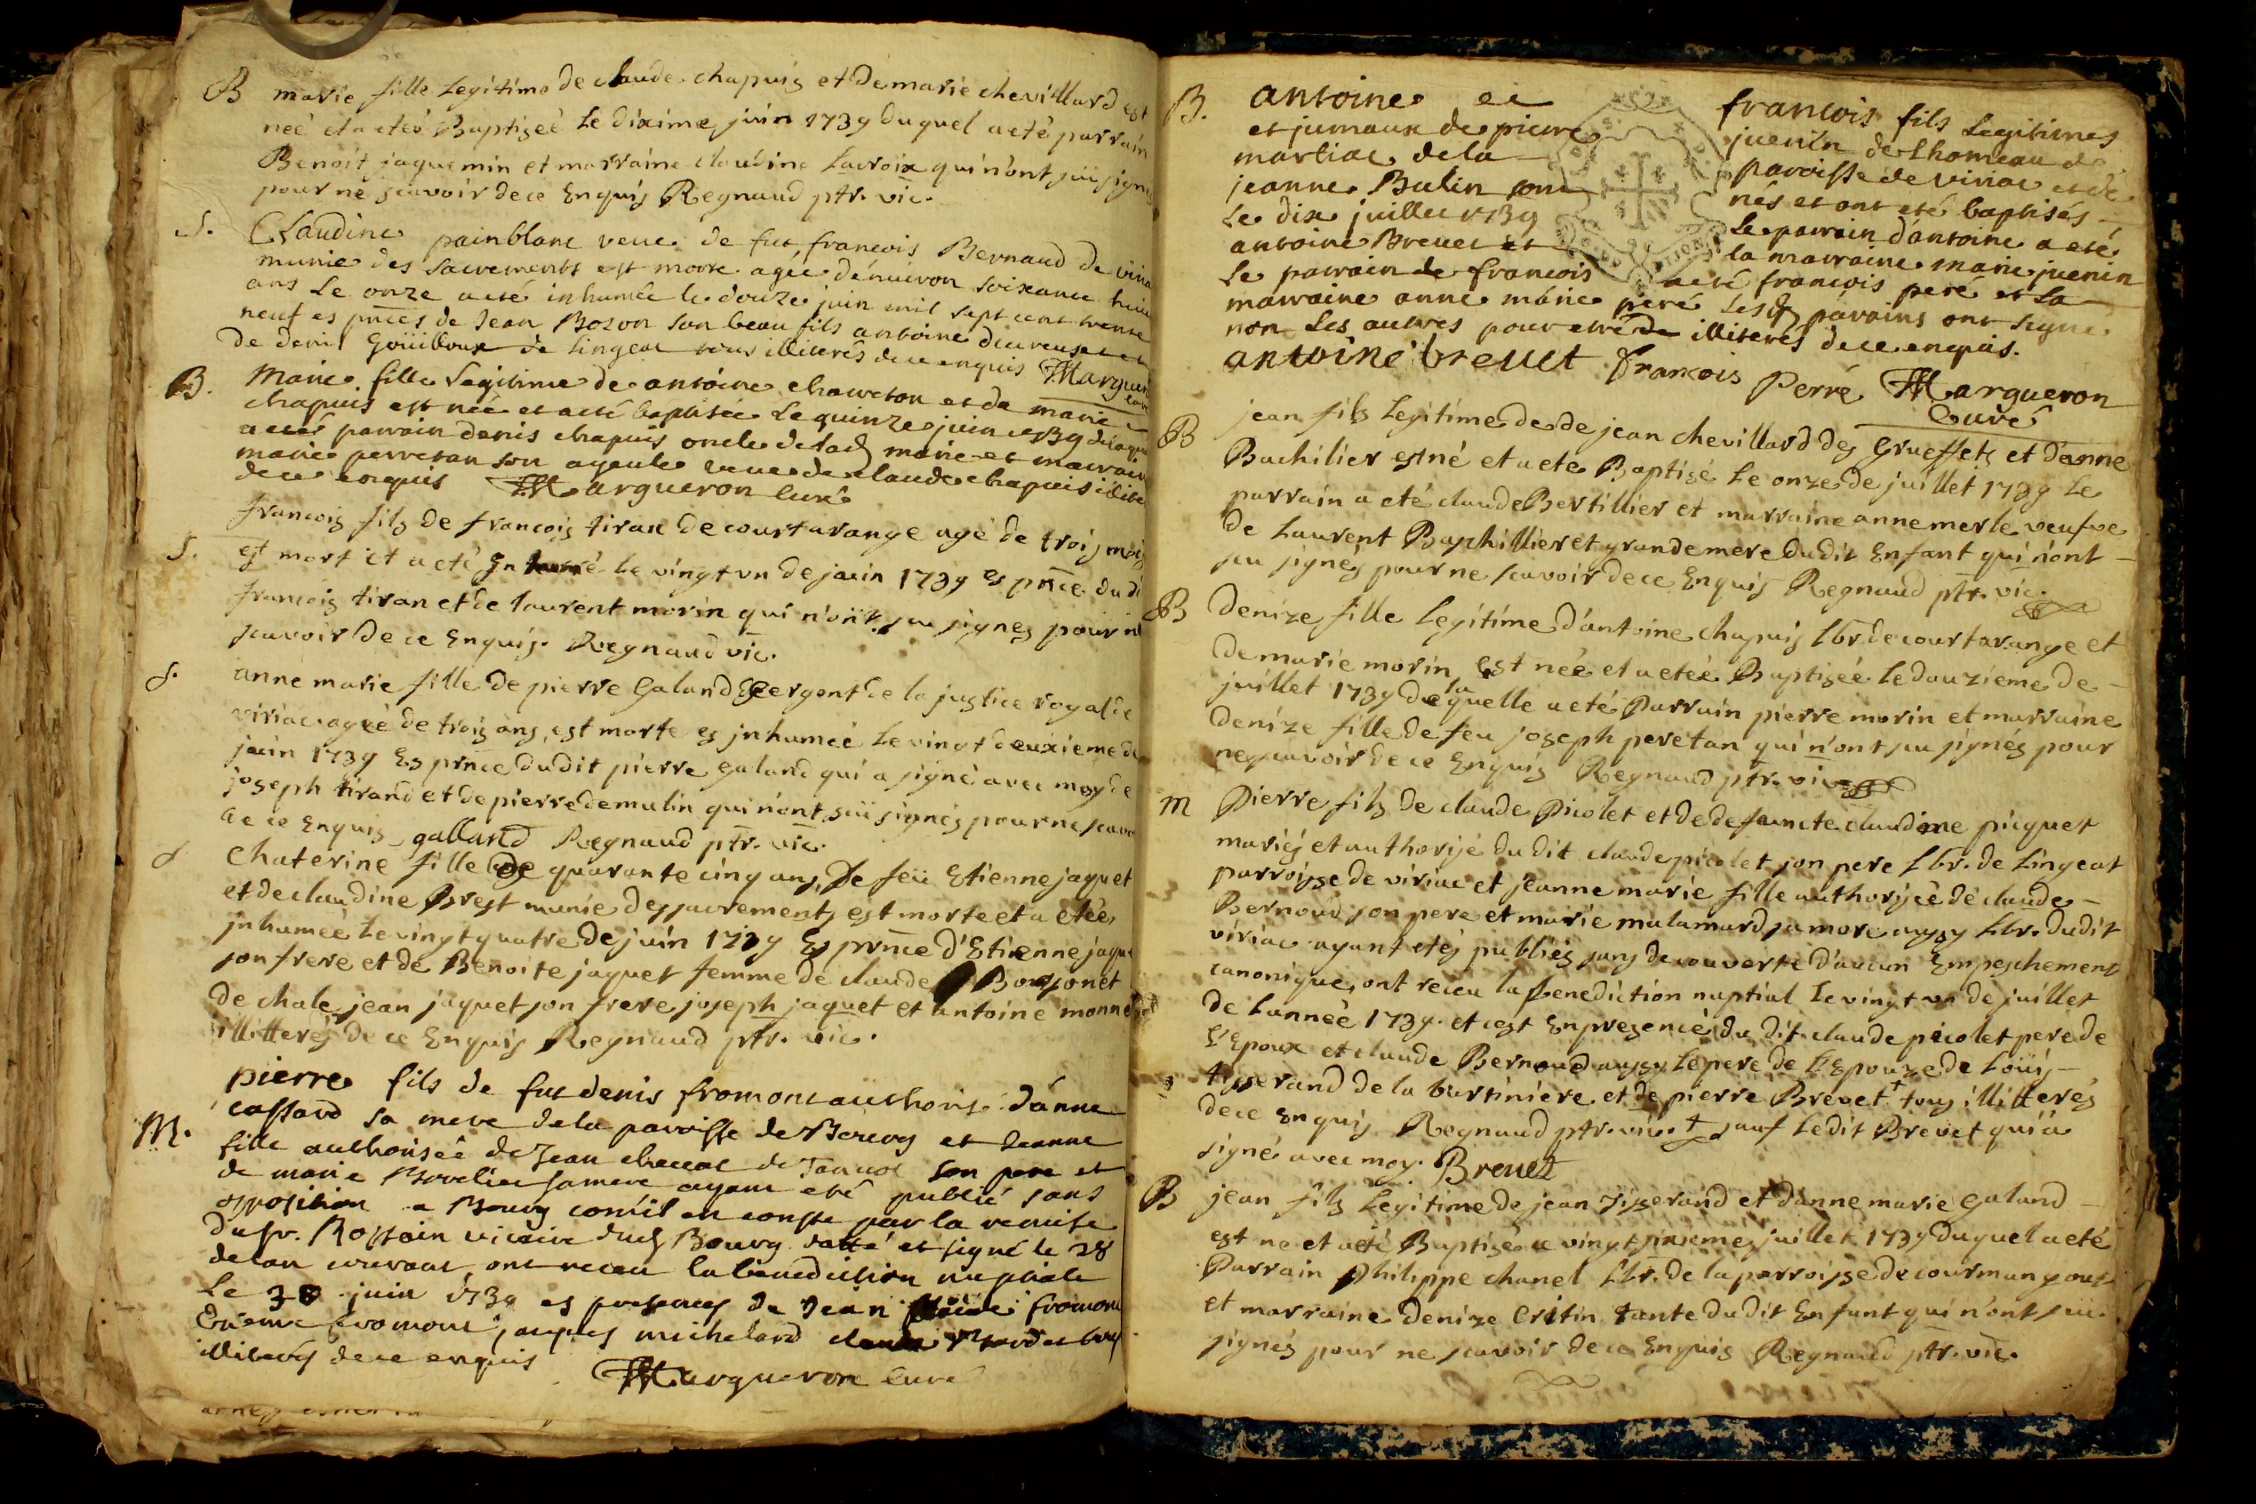 B marie fille Legitime de claude chapuis et de marie chevillard est
neé et a eteé Baptiseé le dixime juin 1739 duquel a eté parrain
Benoit jaquemin et marraine claudine Lacroix qui n'ont sçu signés
pour ne scavoir de ce Enquis Regnaud ptr. vic.
S. Claudine painblanc veuve de fut francois Bernaud de viriac
munie des sacrements est morte agée d'enuiron soixante huit
ans Le onze a eté inhumée le douze juin mil sept cent trente
neuf es pnces de Jean Bozon son beau fils antoine
de denis Gouilloux de Lingeat tous illiterés de ce enquis Margueron
curé
B. Marie fille Legitime de antoine chaureton et de marie
chapuis est née et a eté baptisée Le quinze juin 1739 de laquelle
a eté parrain denis chapuis oncle de lad marie et marraine
marie perretan son ayeule veuve de claude chapuis
de ce enquis Margueron curé
S. francois fils de francois tiran de courtarange agé de trois mois
est mort et a eté Enterré le vingt vn de juin 1739 es pnce dudit
francois tiran et de laurent morin qui n'ont sçu signés pour ne
scavoir de ce Enquis. Regnaud vic.
S. anne marie fille de pierre Galand Sergent de la justice royal de
viriac ageé de trois ans est morte es jnhumeé le vingt deuxieme de
juin 1739 Es prnce dudit pierre galand qui a signé avec moy de
joseph tirand et de pierre demulin qui n'ont sçu signés pour ne scavoir
de ce Enquis galland Regnaud ptr. vic.
S Chaterine fille de quarante cinq ans De feü Etienne jaquet
et de claudine Brest munie des sacrements est morte et a eteé
jnhumeé le vingt quatre de juin 1739 Es prnce d'Etienne jaquet
son frere et de Benoite jaquet femme de claude Bonjonet
de chale, jean jaquet son frere, joseph jaquet et antoine monne
illitterés de ce Enquis Regnaud ptr. vic.
M. pierre fils de fut denis fromont authorisé d'anne
cassard sa mere de la paroisse de et Jeanne
fille authorisée de Jean de son pere et
de marie sa mere ayant eté publié sans
opposition a Bourg com'il en conste par la remise
du sr. Rossain vicaire dud Bourg datté et signé le 28
de lan courant ont receu la benediction nuptiale
Le 30 juin 1739 es presences de Jean fromont
Etienne fromont, jacques michelard claude
illiterés de ce enquis Margueron curé
B. antoine et francois fils Legitimes
et jumaux de pierre juenin de Lhomeau de
martiac de la paroisse de viriac et de
jeanne Bulin sont nés et ont eté baptisés
Le dix juillet 1739 Le parrain d'antoine a eté
antoine Breuet et la marraine marie juenin
Le parrain de francois a eté francois peré et La
marraine anne marie peré Lesd parains ont signé
non Les autres pour etre illiterés de ce enquis.
antoine breuet francois Perré Margueron
Curé
B jean fils Legitime de de jean chevillard des Grueffets et d'anne
Bachilier est né et a eté Baptisé Le onze de juillet 1739 Le
parrain a eté claude Bertillier et marraine anne merle veufve
de Laurent Bachillier et grande mere dudit Enfant qui n'ont
sçu signés pour ne scavoir de ce Enquis Regnaud ptr. vic.
B Denize fille Legitime d'antoine chapuis lbr. de courtarange et
de marie morin est neé et a eteé Baptiseé le douzieme de
juillet 1739 de laquelle a eté Parrain pierre morin et marraine
denize fille de feu joseph peretan qui n'ont sçu signés pour
ne scavoir de ce Enquis Regnaud ptr. vic.
M Pierre fils de claude Picolet et de defuncte claudine picquet
mariés et authorisé dudit claude picolet son pere Lbr. de Lingeat
parroisse de viriac et jeanne marie fille authoriseé de claude
Bernoud son pere et marie malamard sa mere aussy Lbr. dudit
viriac ayant etés publiés sans decouverte d'aucun Empeschement
canonique, ont receu la benediction nuptial Le vingt vn de juillet
de Lanneé 1739. et cest En presence dudit claude picolet pere de
L'Epoux et claude Bernoud aussy Le pere de L'Epouze de Loüis
tisserand de la bertiniere et de pierre Brevet † tous illitterés
de ce Enquis Regnaud ptr. vic. † sauf ledit Brevet qui a
signé avec moy. Breuet
B jean fils Legitime de jean Tisserand et d'anne marie Galand
est né et a eté Baptisé le vingt sixieme juillet 1739 duquel a eté
Parrain philippe chanel Lbr. de la parroisse de courmangoux
et marraine denize Critin tante dudit Enfant qui n'ont sçu
signés pour ne scavoir de ce Enquis Regnaud ptr. vic.